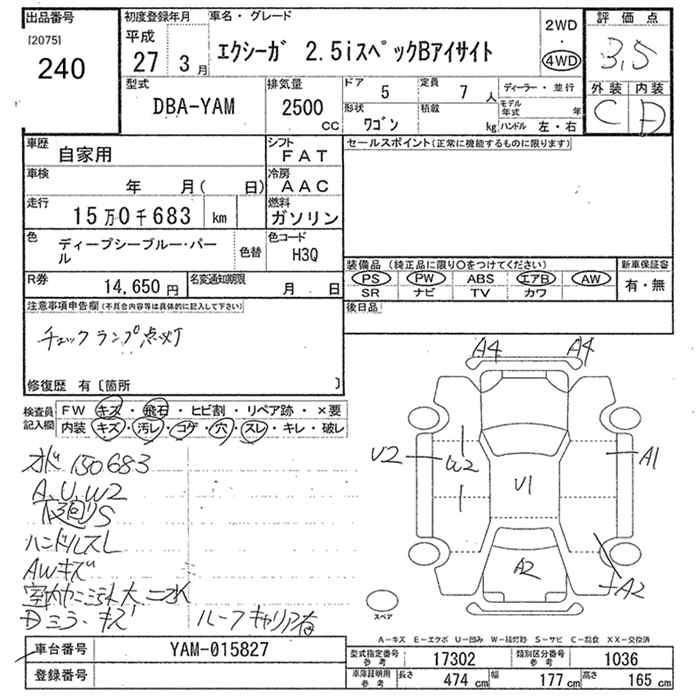 出品番号
[2075]
240
初度登録年月
平成
27 3月
車名・グレード
エクシーガ 2.5iスペックBアイサイト
2WD
・
4WD
評価点
3.5
外装 内装
C D
型式
DBA-YAM
排気量
2500
CC
ドア
5
定員
7人
形状
ワゴン
積載
kg
ディーラー・並行
モデル年式 年
ハンドル 左・右
車歴
自家用
シフト
FAT
セールスポイント(正常に機能するものに限ります)
車検
年 月( 日)
冷房
AAC
走行
15万0千683 km
燃料
ガソリン
色
ディープシーブルー・パール
色替
色コード
H3Q
R券
14,650円
名変通知期限
月 日
装備品 (純正品に限り○をつけてください)
PS PW ABS エアB AW
SR ナビ TV カワ
新車保証書
有・無
注意事項申告欄(不具合内容等は具体的に記入して下さい)
チェックランプ点灯
後日品
修復歴 有〔箇所 〕
検査員記入欄
FW キズ・飛石・ヒビ割・リペア跡・×要
内装 キズ・汚レ・コゲ・穴・スレ・キレ・破レ
150683
A、U、W2
下廻りS
ハンドルスレ
AWキズ
Dミラーキズ
ルーフキャリア有
A4 A4
U2
W2
U1
A1
A2
A2
スペア
A-キズ E-エクボ U-凹み W-補修跡 S-サビ C-腐食 XX-交換済
車台番号
YAM-015827
登録番号
型式指定番号
参考
17302
類別区分番号
参考
1036
車庫証明用
参考
長さ 474 cm
幅 177 cm
高さ 165 cm